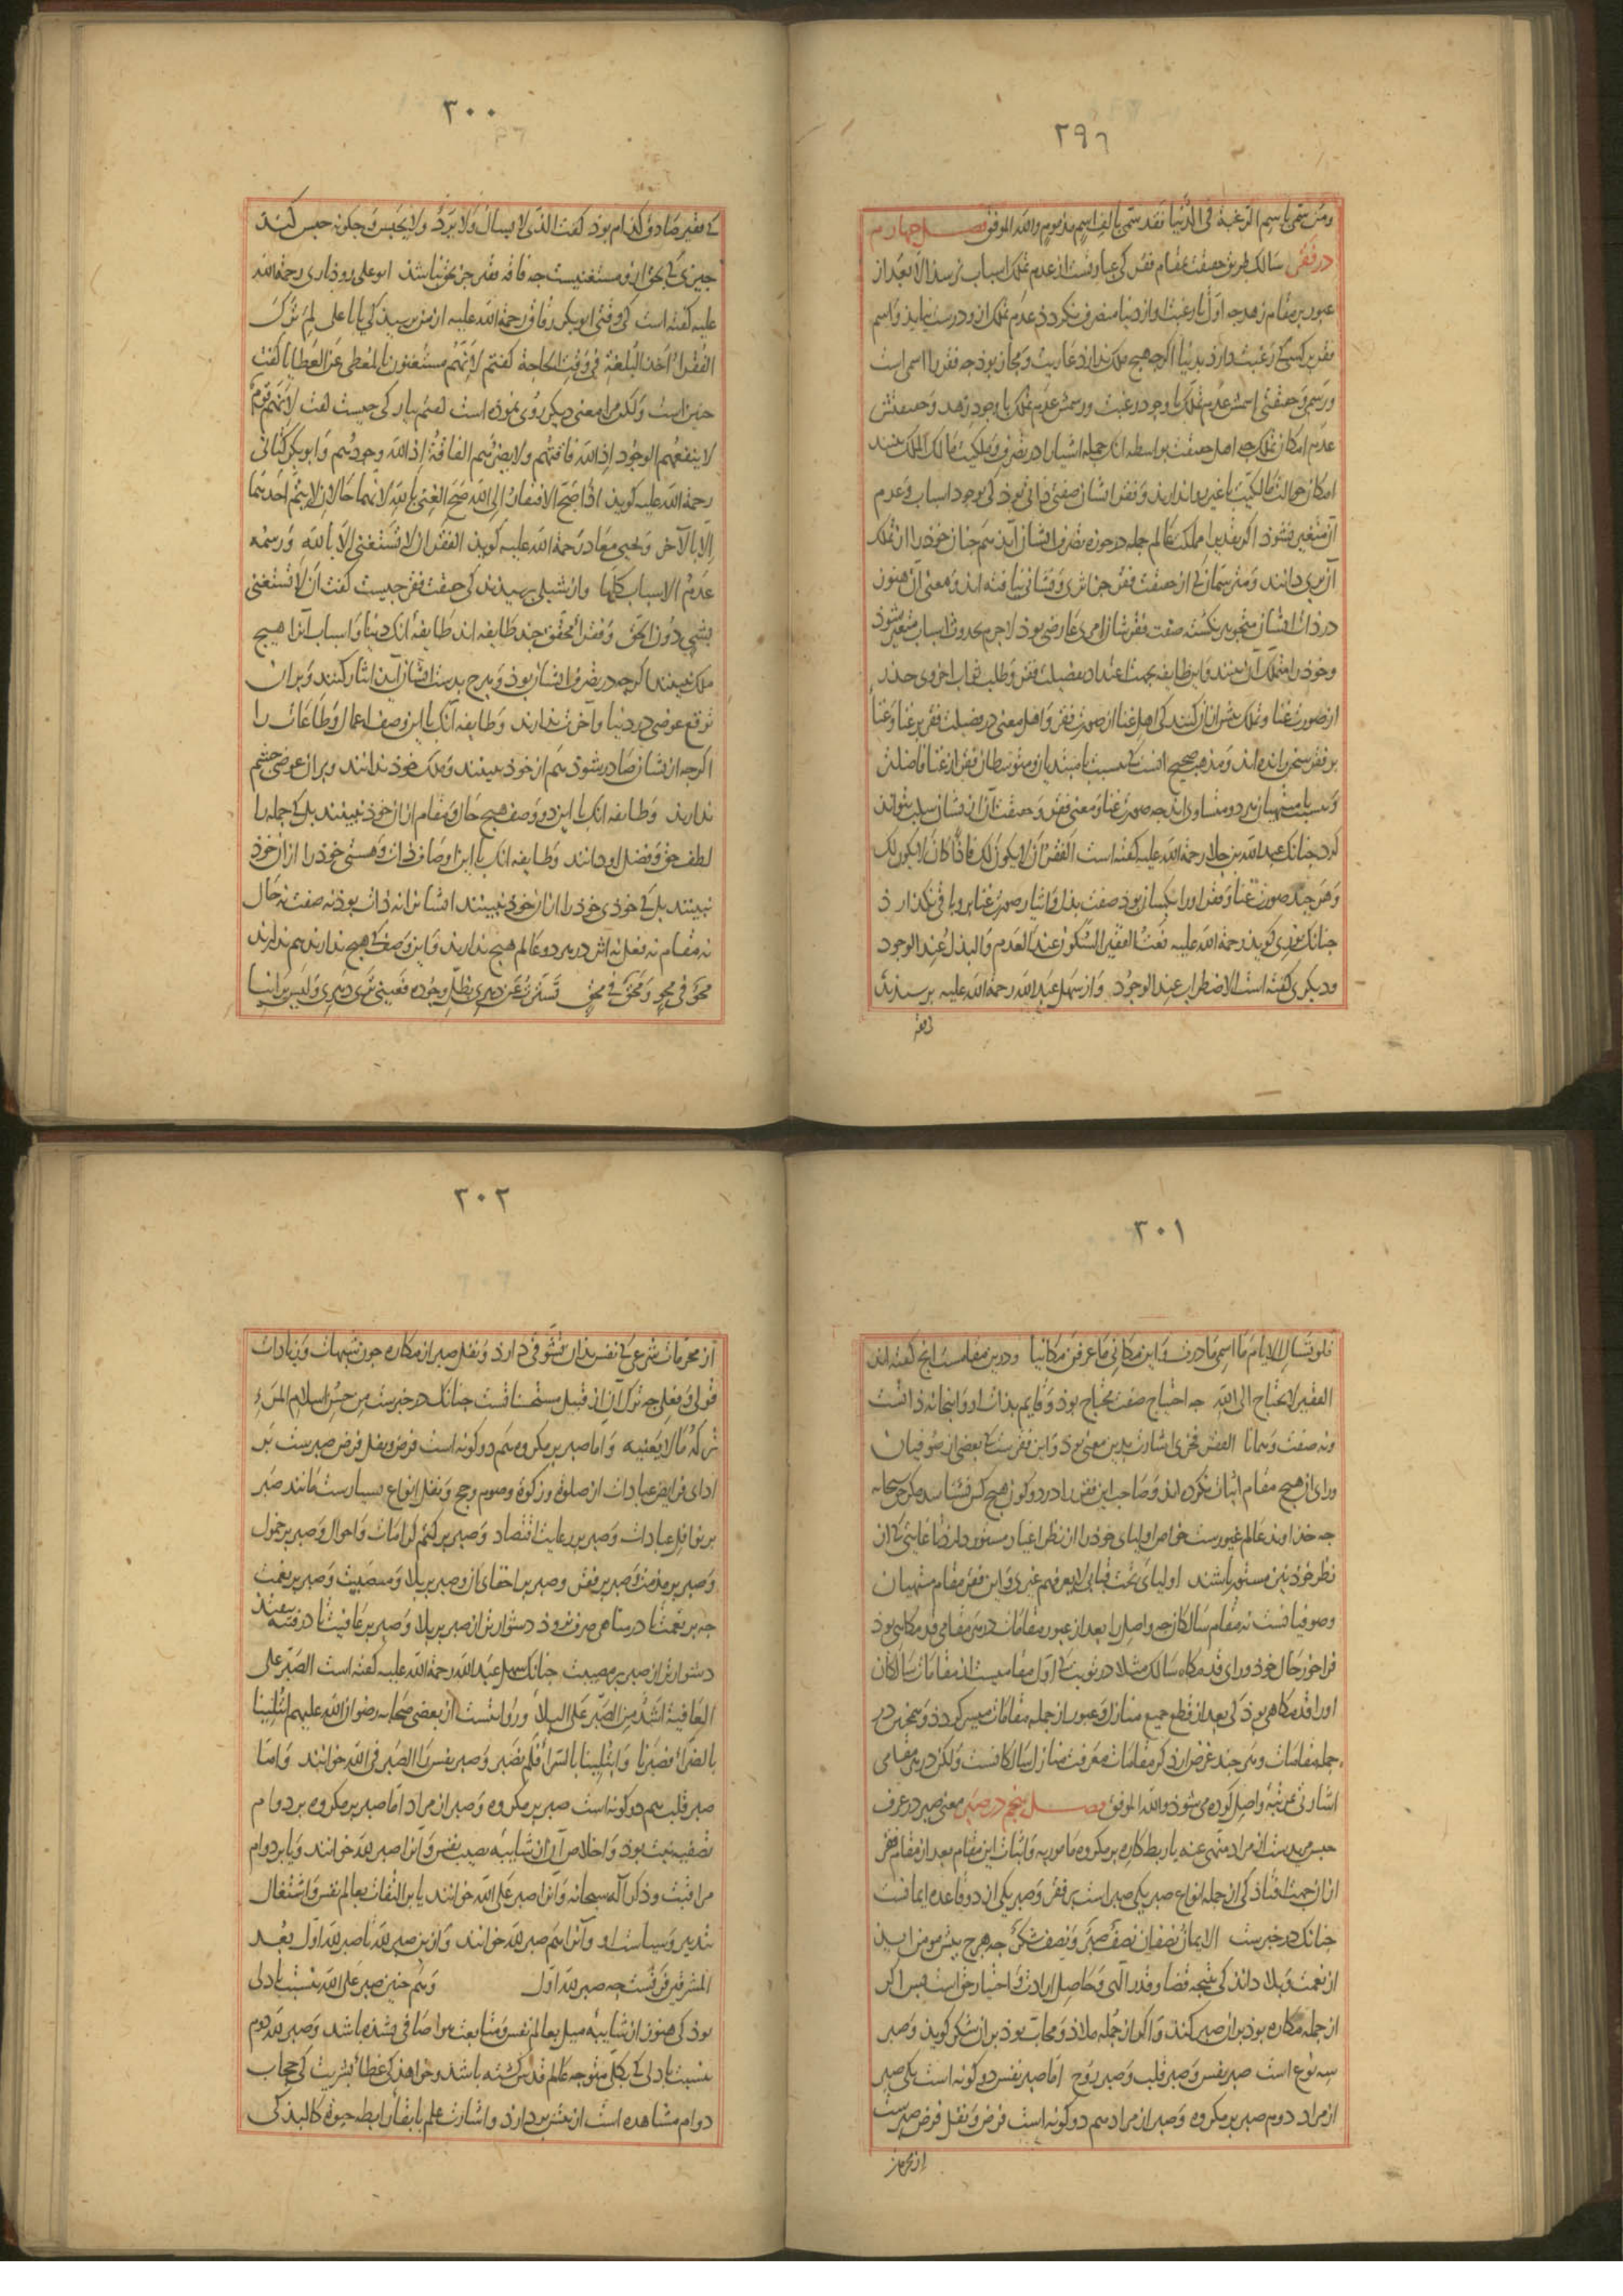 ۲۹۹
ومن سمی باسم الرغبة فی الدنیا فقد سمی بالف اسم مذموم والله الموفق فصل چهارم
در فقر سالک طریق حقیقت بمقام فقر کی عبارتست از عدم تملک اسباب نرسد الا بعد از
عبور بر مقام زهد چه اول تا رغبت او از دنیا منصرف نکردد عدم تملک ازو درست نیاید و اسم
فقر بر کسی که رغبت دارد بدنیا اکرچه هیچ ملک ندارد عاریت و مجاز بود چه فقر را اسمی است
و رسمی و حقیقتی اسمش عدم تملک با وجود رغبت و رسمش عدم تملک با وجود زهد و حقیقتش
عدم امکان تملک چه اهل حقیقت بواسطه آنک جمله اشیا را در تصرف و ملکیت مالک الملک بینند
امکان حوالت مالکیت با غیر روا ندارند و فقر ایشان صفتی ذاتی بود کی بوجود اسباب و عدم
آن متغیر نشود اکر بتقدیر مملکت عالم جمله در حوزه تصرف ایشان آید هم چنان خود را از تملک
آن بری دانند و مترسمان کی از حقیقت فقر جز اثری و نشانی نیافته اند و معنی آن هنوز
در ذات ایشان متجوهر نکشته صفت فقرشان امری عارضی بود لاجرم بحدوث اسباب متغیر شود
و خود را متملک آن بینند و این طایفه بجهت اعتداد بفضیلت فقر و طلب ثواب اخروی چندان
از صورت غنا و تملک احتراز کنند کی اهل غنا از صورت فقر و اهل معنی در فضیلت فقر بر غنا و غنا
بر فقر سخن رانده اند و مذهب صحیح آنست که نسبت با مبتدیان و متوسطان فقر از غنا فاضلتر
و نسبت با منتهیان هر دو متساوی اند چه صورت غنا و معنی فقر و حقیقت آن از ایشان سلب نتواند
کرد چنانک عبد الله بن جلا رحمة الله علیه کفته است الفقر ان لا یکون لک فاذا کان لا یکون لک
و هر چند صورت غنا و فقر او را یکسان بود صفت بذل و ایثار صورت غنا برو باقی نکذارد
چنانک نوری کوید رحمة الله علیه نعت الفقیر السکون عند العدم والبذل عند الوجود
و دیکری کفته است الاضطراب عند الوجود و از سهل عبد الله رحمة الله علیه پرسیدند
۳۰۰
کی فقیر صادق کدام بود کفت الذی لا یسال ولا یرد ولا یحبس و چکونه حبس کند
چیزی کی بحق ازو مستغنیست چه فاقه فقیر جز بحق نباشد ابو علی روذباری رحمة الله
علیه کفته است کی وقتی ابو بکر زقاق رحمة الله علیه از من پرسید کی یا با علی لم ترک
الفقراء اخذ البلغة فی وقت الحاجة کفتم لانهم مستغنون بالمعطی عن العطایا کفت
چنین است ولکن مرا معنی دیکر روی نموده است کفتم بیار کی چیست کفت لانهم قوم
لا ینفعهم الوجود اذ الله فاقتهم ولا یضرهم الفاقة اذ الله وجودهم و ابو بکر کتانی
رحمة الله علیه کوید اذا صح الافتقار الی الله صح الغنی بالله لانهما حالان لا یتم احدهما
الا بالآخر و یحیی معاذ رحمة الله علیه کوید الفقر ان لا تستغنی الا بالله و رسمه
عدم الاسباب کلها و از شبلی پرسیدند کی حقیقت فقر چیست کفت ان لا تستغنی
بشیء دون الحق و فقراء محقق چند طایفه اند طایفه آنک دنیا و اسباب آنرا هیچ
ملک نبینند اکرچه در تصرف ایشان بود و هرچ بدست ایشان آید ایثار کنند و بر آن
توقع عوضی در دنیا و آخرت ندارند و طایفه آنک با این وصف اعمال و طاعات را
اکرچه از ایشان صادر شود هم از خود نبینند و ملک خود ندانند و بر آن عوض چشم
ندارند و طایفه آنک با این دو وصف هیچ حال و مقام از آن خود نبینند بل کی جمله را
لطف حق و فضل او دانند و طایفه آنک با این اوصاف ذات و هستی خود را از آن خود
نبینند بل کی خودی خود را از آن خود نبینند ایشانرا نه ذات بود نه صفت نه حال
نه مقام نه فعل نه اثر در هر دو عالم هیچ ندارند و این وصف کی هیچ ندارند هم ندارند
محو فی محو و محق فی محق تسترت عن دهری بظل وجوده فعینی تری دهری ولیس یرانیا
۳۰۱
فلو تسال الایام ما اسمی ما درت و این مکانی ما عرفن مکانیا و درین مقامست انچ کفته اند
الفقیر لا یحتاج الی الله چه احتیاج صفت محتاج بود و قایم بذات او و اینجا نه ذاتست
و نه صفت و همانا الفقر فخری اشارت بدین معنی بود و این فقریست کی بعضی از صوفیان
ورای آن هیچ مقام اثبات نکرده اند و صاحب این فقر را در دو کون هیچ کس نشناسد مکر حق سبحانه
چه خداوند عالم غیورست خواص اولیای خود را از نظر اغیار مستور دارد تا غایتی کی از
نظر خود نیز مستور باشند اولیای تحت قبابی لا یعرفهم غیری و این فقر مقام منتهیان
و صوفیانست نه مقام سالکان چه واصل را بعد از عبور مقامات در هر مقامی قدمکاهی بود
فراخور حال خود ورای قدمکاه سالک مثلا در توبت کی اول مقامیست از مقامات سالکان
او را قدمکاهی بود کی بعد از قطع جمیع منازل و عبور از جمله مقامات میسر کردد و همچنین در
جمله مقامات و هر چند غرض از ذکر مقامات معرفت منازل سالکانست ولکن در هر مقامی
اشارتی بمرتبه واصل کرده می شود والله الموفق فصل پنجم در صبر معنی صبر در عرف
حبس مریدست از مراد منهی عنه یا ربط کاره بر مکروه مامور به و اثبات این مقام بعد از مقام فقر
از آن جهت افتاد کی از جمله انواع صبر یکی صبر است بر فقر و صبر یکی از دو قاعده ایمانست
چنانک در خبرست الایمان نصفان نصف صبر و نصف شکر چه هرچ پیش مومن آید
از نعمت و بلا داند کی نتیجه قضا و قدر الهی و حاصل ارادت و اختیار حق است پس اکر
از جمله مکاره بود بر آن صبر کند و اکر از جمله ملاذ و محاب بود بر آن شکر کوید و صبر
سه نوع است صبر نفس و صبر قلب و صبر روح اما صبر نفس دو کونه است یکی صبر
از مراد دوم صبر بر مکروه و صبر از مراد هم دو کونه است فرض و نفل فرض صبرست
۳۰۲
از محرمات شرعی کی نفس بدان تشوقی دارد و نفل صبر از مکاره چون شبهات و زیادات
قولی و فعلی چه ترک آن از قبیل مستحسناتست چنانک در خبرست من حسن اسلام المرء
ترکه ما لا یعنیه و اما صبر بر مکروه هم دو کونه است فرض و نفل فرض صبرست بر
ادای فرایض عبادات از صلوة و زکوة و صوم و حج و نفل انواع بسیارست مانند صبر
بر نوافل عبادات و صبر بر رعایت اقتصاد و صبر بر کتم کرامات و احوال و صبر بر خمول
و صبر بر مذمت و صبر بر فقر و صبر بر اخفای آن و صبر بر بلا و مصیبت و صبر بر نعمت
چه بر نعمت تا در مناهی صرف نرود دشوارتر از صبر بر بلا و صبر بر عافیت تا در فتنه نیفتد
دشوارتر از صبر بر مصیبت چنانک سهل عبد الله رحمة الله علیه کفته است الصبر علی
العافیة اشد من الصبر علی البلاء و روایتست از بعضی صحابه رضوان الله علیهم ابتلینا
بالضراء فصبرنا وابتلینا بالسراء فلم نصبر و صبر نفس را الصبر فی الله خوانند و اما
صبر قلب هم دو کونه است صبر بر مکروه و صبر از مراد اما صبر بر مکروه بر دوام
تصفیه نیت بود و اخلاص آن از شایبه نصیب نفس و آنرا صبر لله خوانند و یا بر دوام
مراقبت و ذکر اله سبحانه و آنرا صبر علی الله خوانند یا بر التفات بعالم نفس و اشتغال
بتدبیر و سیاست او و آنرا هم صبر لله خوانند و از بن صبر لله تا صبر لله اول بعد
المشرقین فرقست چه صبر لله اول و هم چنین صبر علی الله بنسبت با دلی
بود کی هنوز از شایبه میل بعالم نفس و متابعت هوا صافی نشده باشد و صبر لله دوم
بنسبت با دلی کی بکلی متوجه عالم قدس کشته باشد و خواهد کی غطاء بشریت کی حجاب
دوام مشاهده است از بشر بردارد و اشارت علم بابقاء رابطه حیوة کالبد کی